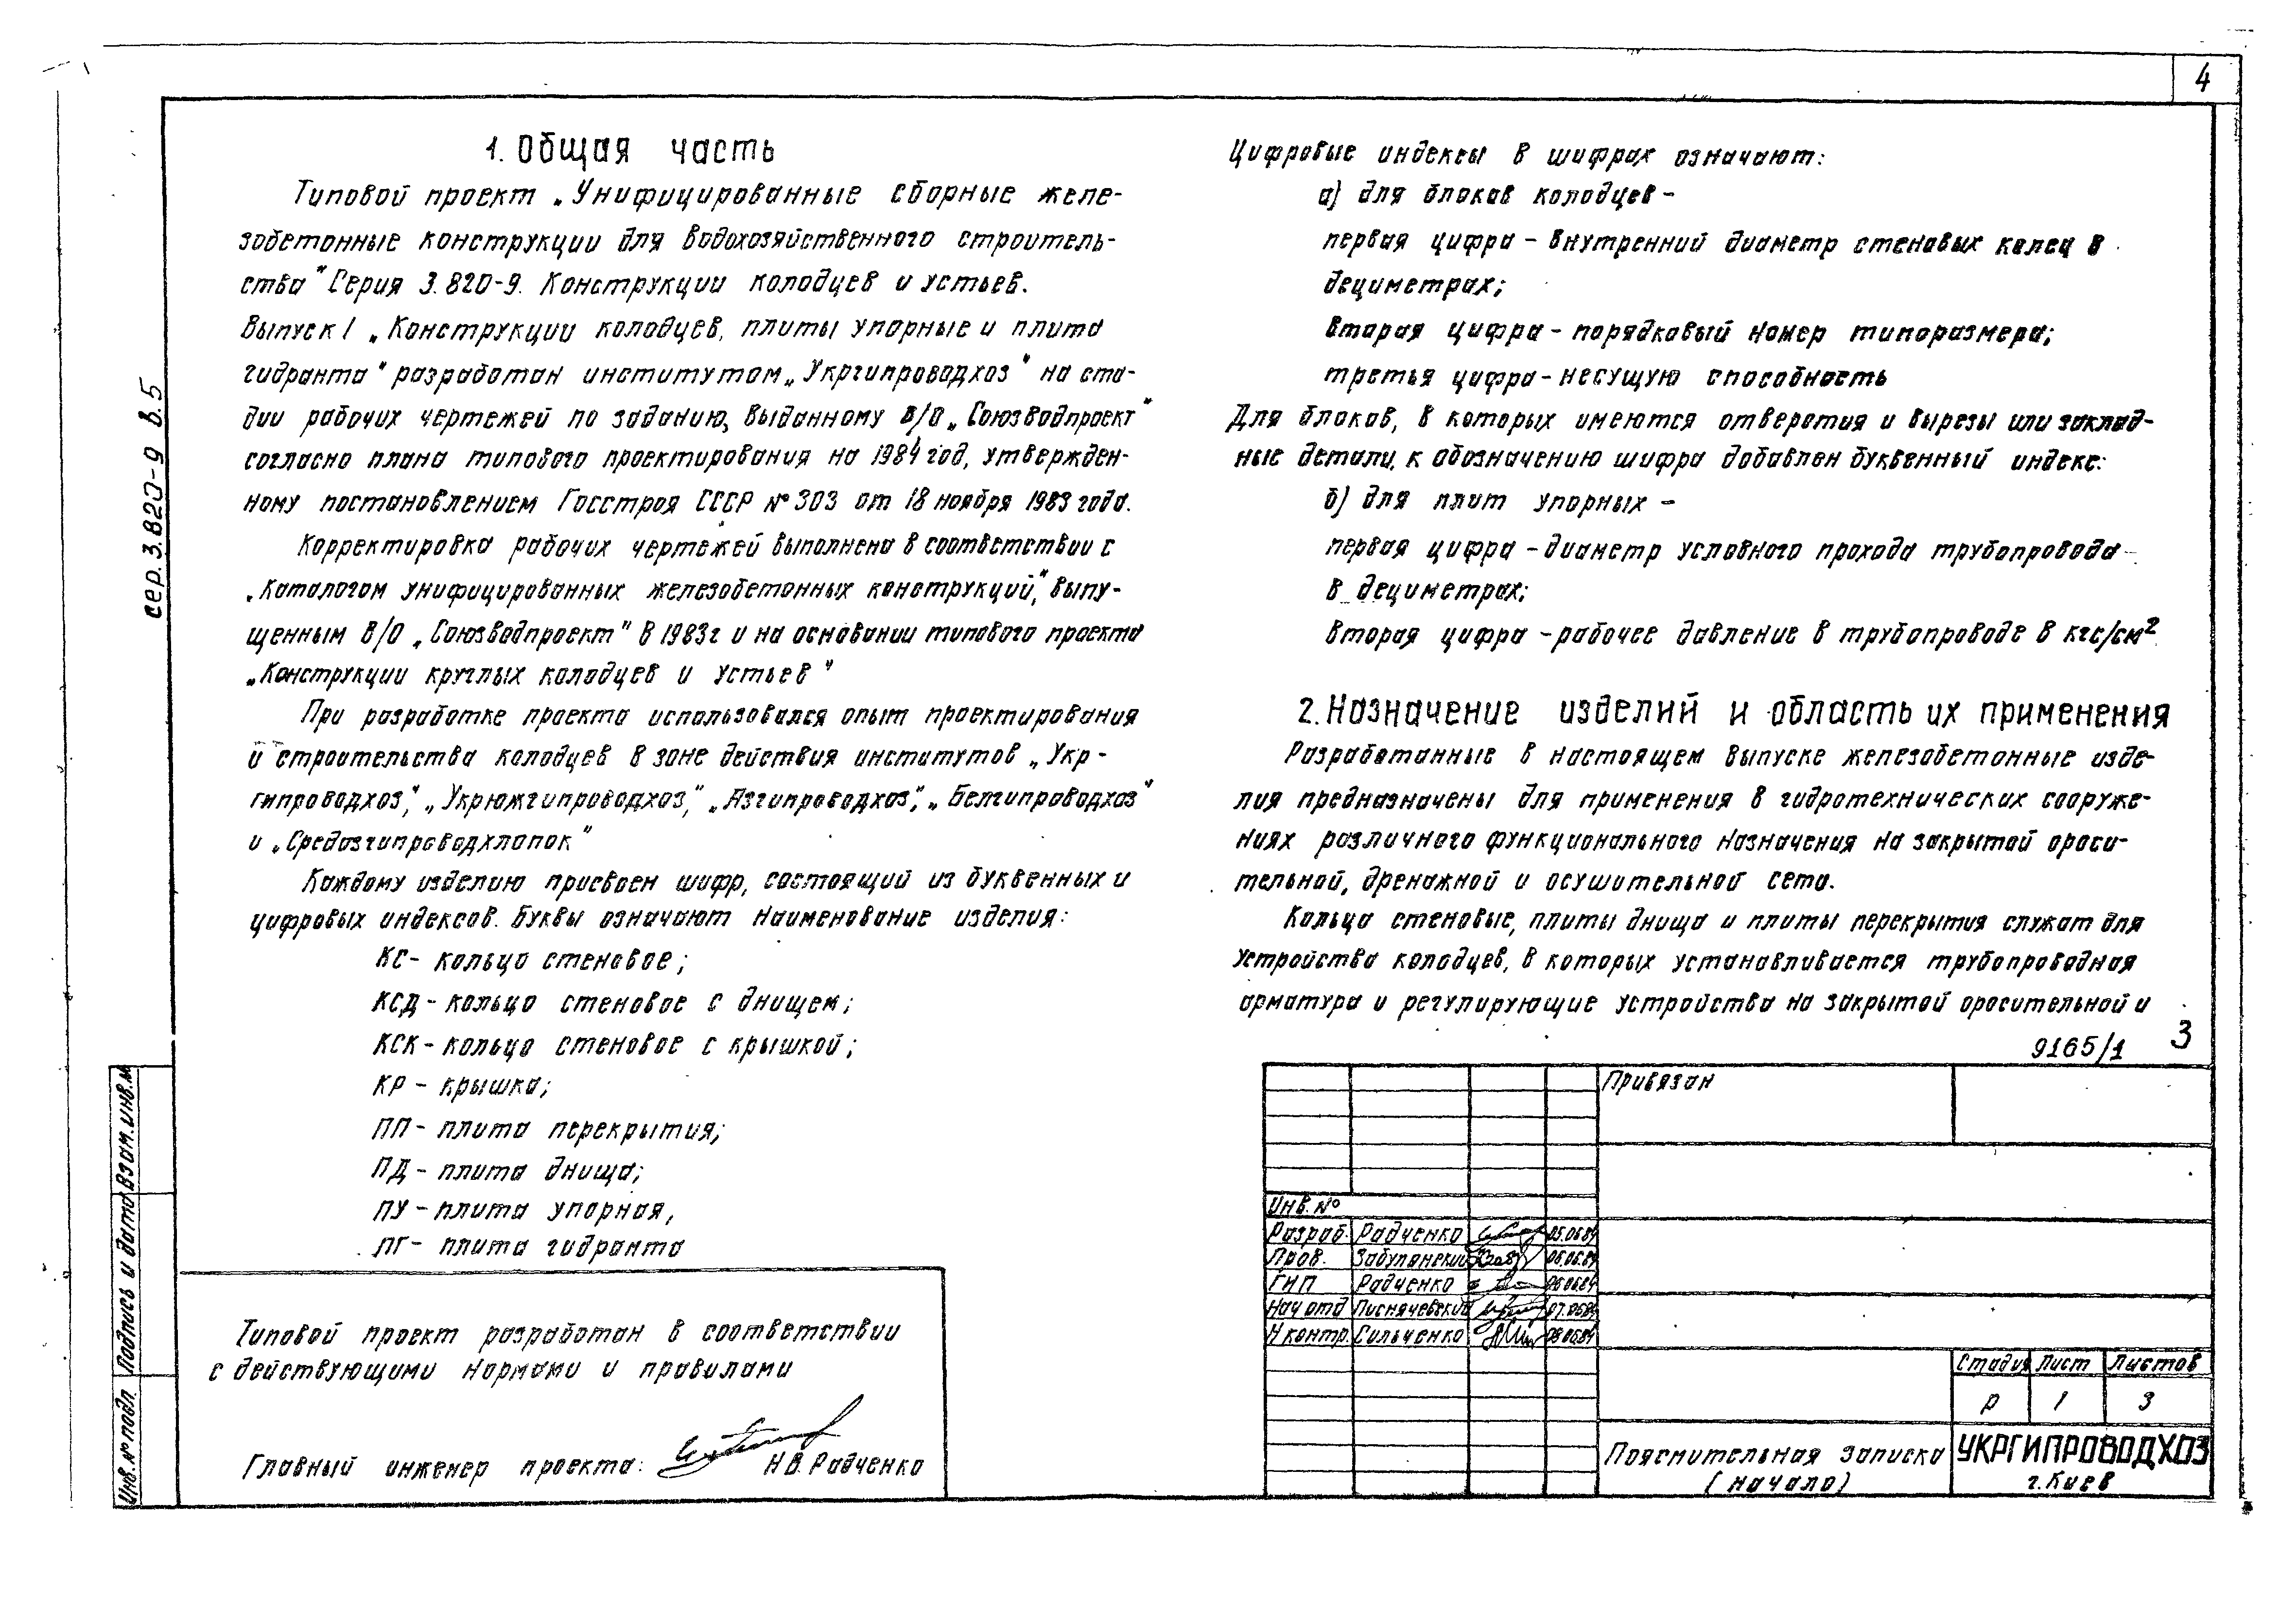 4
сер. 3.820-9 в.5
1. Общая часть
Типовой проект „Унифицированные сборные желе-
зобетонные конструкции для водохозяйственного строитель-
ства" Серия 3.820-9. Конструкции колодцев и устьев.
Выпуск 1 „Конструкции колодцев, плиты упорные и плита
гидранта" разработан институтом „Укргипроводхоз" на ста-
дии рабочих чертежей по заданию, выданному В/О „Союзводпроект"
согласно плана типового проектирования на 1984 год, утвержден-
ному постановлением Госстроя СССР № 303 от 18 ноября 1983 года.
Корректировка рабочих чертежей выполнена в соответствии с
„Каталогом унифицированных железобетонных конструкций", выпу-
щенным В/О „Союзводпроект" в 1983г и на основании типового проекта
„Конструкции круглых колодцев и устьев"
При разработке проекта использовался опыт проектирования
и строительства колодцев в зоне действия институтов „Укр-
гипроводхоз", „Укрюжгипроводхоз", „Азгипроводхоз", „Белгипроводхоз"
и „Средазгипроводхлопок"
Каждому изделию присвоен шифр, состоящий из буквенных и
цифровых индексов. Буквы означают наименование изделия:
КС- кольцо стеновое;
КСД- кольцо стеновое с днищем;
КСК- кольцо стеновое с крышкой;
КР - крышка;
ПП- плита перекрытия;
ПД- плита днища;
ПУ - плита упорная,
ПГ- плита гидранта
Типовой проект разработан в соответствии
с действующими нормами и правилами
Главный инженер проекта: Н.В. Радченко
Цифровые индексы в шифрах означают:
а) для блоков колодцев -
первая цифра - внутренний диаметр стеновых колец в
дециметрах;
вторая цифра - порядковый номер типоразмера;
третья цифра - несущую способность
Для блоков, в которых имеются отверстия и вырезы или заклад-
ные детали, к обозначению шифра добавлен буквенный индекс:
б) для плит упорных -
первая цифра - диаметр условного прохода трубопровода
в дециметрах;
вторая цифра - рабочее давление в трубопроводе в кгс/см²
2. Назначение изделий и область их применения
Разработанные в настоящем выпуске железобетонные изде-
лия предназначены для применения в гидротехнических сооруже-
ниях различного функционального назначения на закрытой ороси-
тельной, дренажной и осушительной сети.
Кольца стеновые, плиты днища и плиты перекрытия служат для
устройства колодцев, в которых устанавливается трубопроводная
арматура и регулирующие устройства на закрытой оросительной и
9165/1 3
Привязан
Инв. №
Разраб. Радченко 05.06.84
Пров. Забулонский 06.06.84
ГИП Радченко 06.06.84
Нач отд Писнячевский 07.06.84
Н контр. Сильченко 08.06.84
Стадия Лист Листов
Р 1 3
Пояснительная записка
(начало)
УКРГИПРОВОДХОЗ
г. Киев
Взам. инв. №
Подпись и дата
Инв. № подл